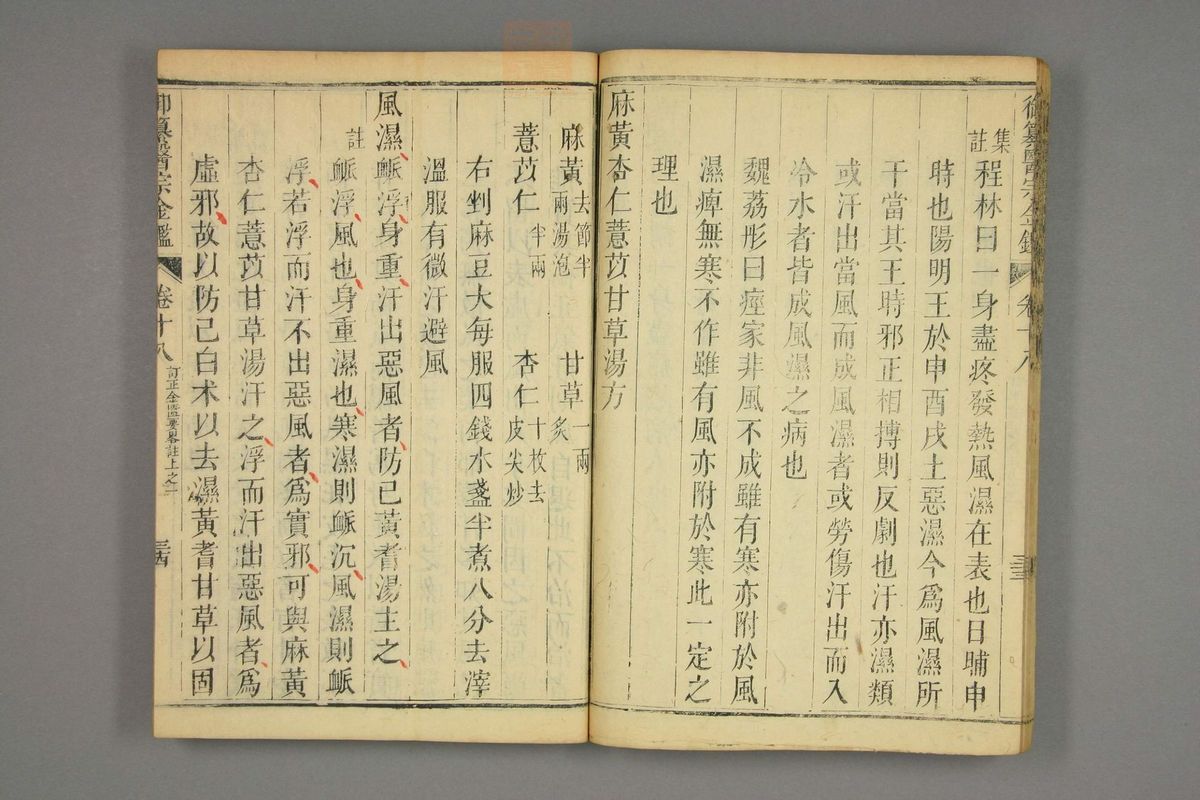 御纂醫宗金鑑 卷十八 三三
集註 程林曰一身盡疼發熱風濕在表也日晡申
時也陽明王於申酉戌土惡濕今爲風濕所
干當其王時邪正相搏則反劇也汗亦濕類
或汗出當風而成風濕者或勞傷汗出而入
冷水者皆成風濕之病也
魏荔彤曰痙家非風不成雖有寒亦附於風
濕痺無寒不作雖有風亦附於寒此一定之
理也
麻黃杏仁薏苡甘草湯方
麻黃 去節半兩湯泡 甘草 一兩炙
薏苡仁 半兩 杏仁 十枚去皮尖炒
右剉麻豆大每服四錢水盞半煮八分去滓
溫服有微汗避風
風濕䘑浮身重汗出惡風者防己黃耆湯主之
註 䘑浮風也身重濕也寒濕則䘑沉風濕則䘑
浮若浮而汗不出惡風者爲實邪可與麻黃
杏仁薏苡甘草湯汗之浮而汗出惡風者爲
虛邪故以防己白朮以去濕黃耆甘草以固
御纂醫宗金鑑 卷十八 訂正金匱要畧註上之一 三四